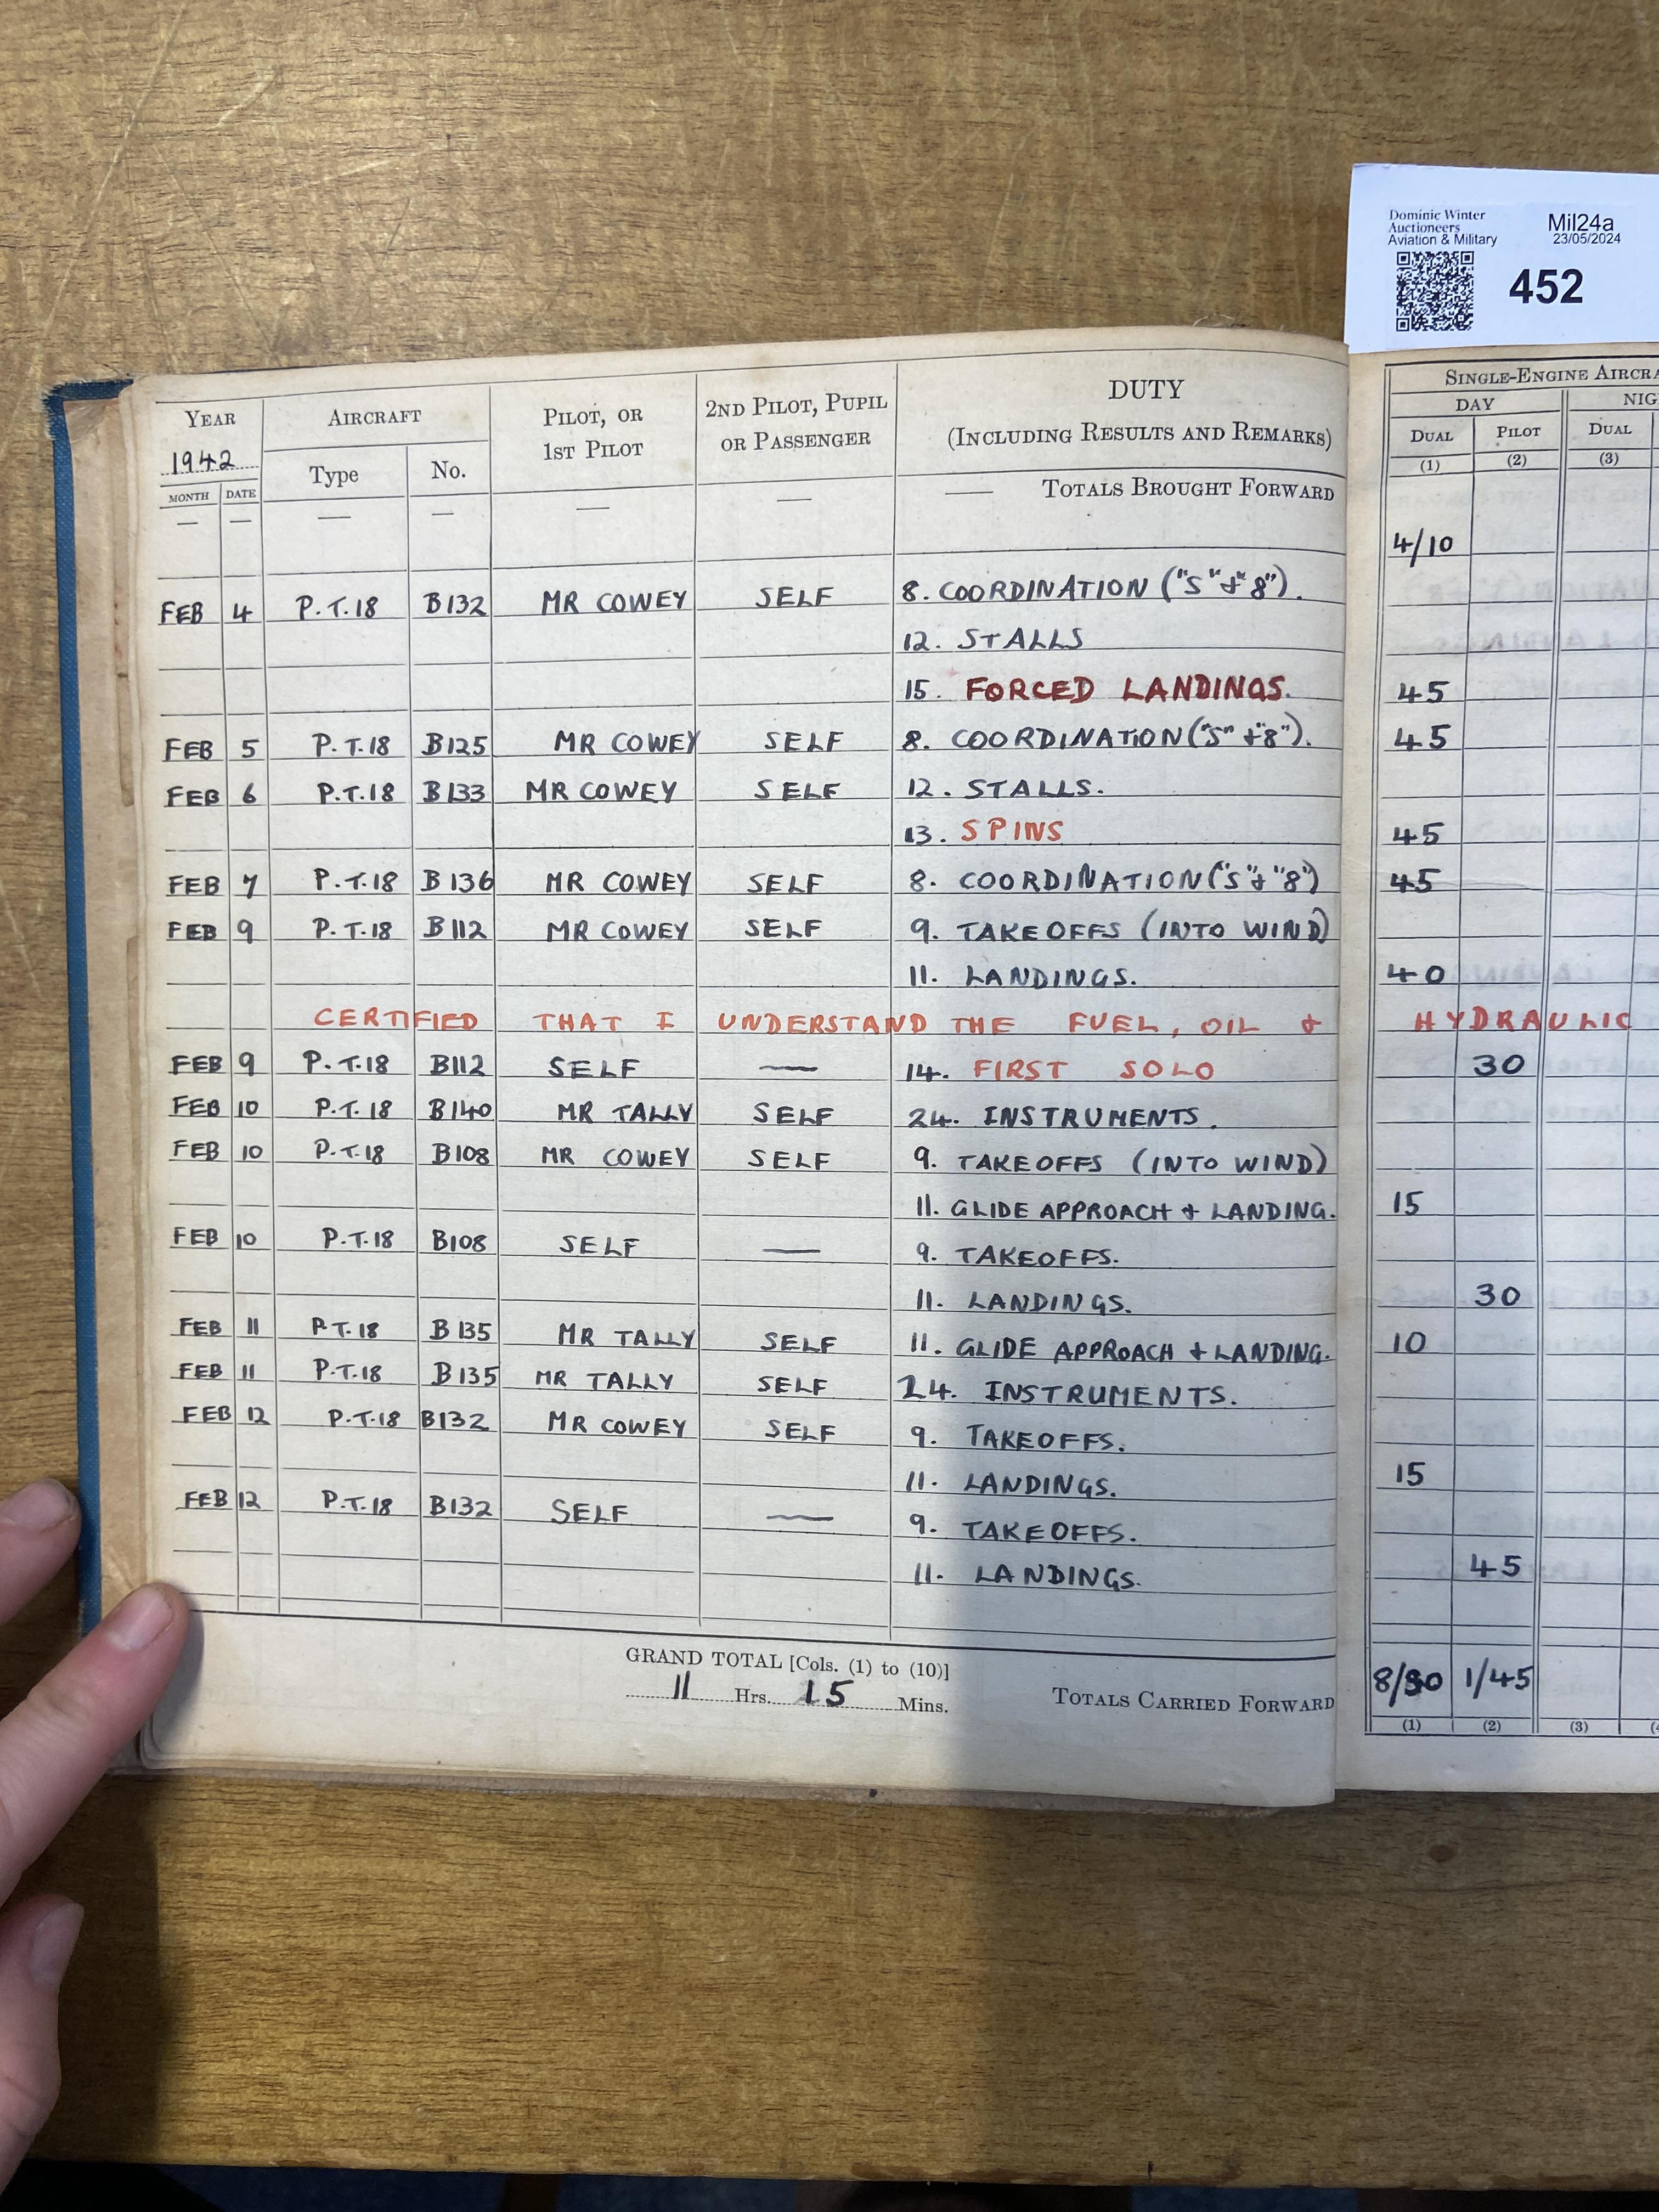 Dominic Winter
Auctioneers
Aviation & Military
Mil24a
23/05/2024
452
YEAR AIRCRAFT PILOT, OR 1ST PILOT 2ND PILOT, PUPIL OR PASSENGER DUTY (INCLUDING RESULTS AND REMARKS) SINGLE-ENGINE AIRCRA
1942 Type No. DAY NIG
MONTH DATE DUAL PILOT DUAL
(1) (2) (3)
— — — — — — — TOTALS BROUGHT FORWARD
4/10
FEB 4 P.T.18 B132 MR COWEY SELF 8. COORDINATION ("S" + "8").
12. STALLS
15. FORCED LANDINGS. 45
FEB 5 P.T.18 B125 MR COWEY SELF 8. COORDINATION ("S" + "8"). 45
FEB 6 P.T.18 B133 MR COWEY SELF 12. STALLS.
13. SPINS 45
FEB 7 P.T.18 B136 MR COWEY SELF 8. COORDINATION ("S" + "8") 45
FEB 9 P.T.18 B112 MR COWEY SELF 9. TAKEOFFS (INTO WIND)
11. LANDINGS. 40
CERTIFIED THAT I UNDERSTAND THE FUEL, OIL + HYDRAULIC
FEB 9 P.T.18 B112 SELF — 14. FIRST SOLO 30
FEB 10 P.T.18 B140 MR TALLY SELF 24. INSTRUMENTS.
FEB 10 P.T.18 B108 MR COWEY SELF 9. TAKEOFFS (INTO WIND)
11. GLIDE APPROACH + LANDING. 15
FEB 10 P.T.18 B108 SELF — 9. TAKEOFFS.
11. LANDINGS. 30
FEB 11 P.T.18 B135 MR TALLY SELF 11. GLIDE APPROACH + LANDING. 10
FEB 11 P.T.18 B135 MR TALLY SELF 24. INSTRUMENTS.
FEB 12 P.T.18 B132 MR COWEY SELF 9. TAKEOFFS.
11. LANDINGS. 15
FEB 12 P.T.18 B132 SELF — 9. TAKEOFFS.
11. LANDINGS. 45
GRAND TOTAL [Cols. (1) to (10)]
11 Hrs. 15 Mins. TOTALS CARRIED FORWARD 1/45
(1) (2) (3)